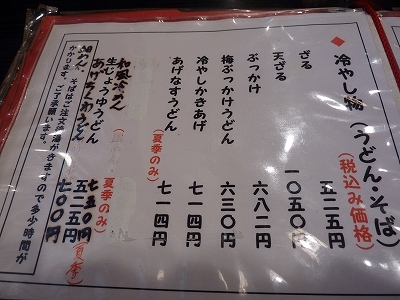 ◆冷やし物(うどん・そば)
(税込み価格)
ざる 五二五円
天ざる 一〇五〇円
ぶっかけ 六八二円
梅ぶっかけうどん 六三〇円
冷やしかきあげ 七一四円
あげなすうどん(夏季のみ) 七一四円
和風冷めん(夏季のみ) 七五〇円
生じょうゆうどん 五二五円
七〇〇円
そばはご注文
ので多少時間が
かかります。ご了承願います。